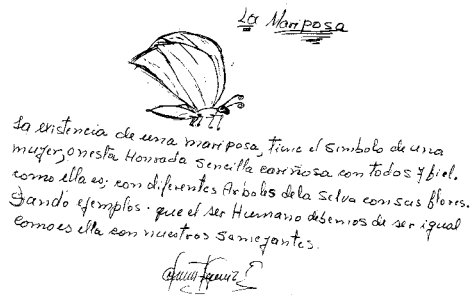 La Mariposa
La existencia de una mariposa, tiene el simbolo de una
mujer, onesta Honrada sencilla cariñosa con todos y biel.
como ella es; con diferentes Arboles de la selva con sus flores.
Dando ejemplos. que el ser Humano debemos de ser igual
como es ella con nuestros semejantes.